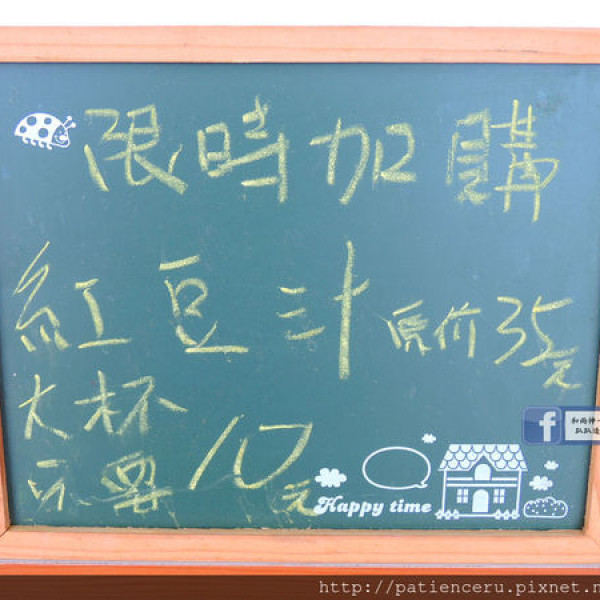 限時加購
紅豆汁 原价35元
大杯
只要10元
Happy time
http://patienceru.pixnet.n